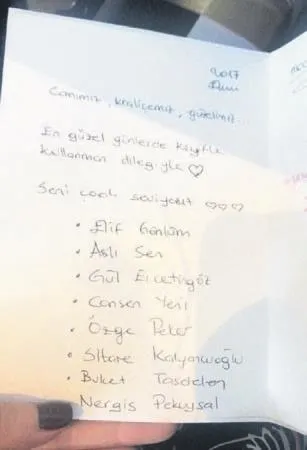 2017
Canımız, kraliçemiz, güzelimiz...
En güzel günlerde keyifle
kullanman dileğiyle ♡
Seni çook seviyoruz ♡♡♡
• Elif Gönlüm
• Aslı Şen
• Gül
• Cansen Yeni
• Özge Peker
• Sitare Kalyoncuoğlu
• Buket Taşdelen
Nergis Pekuysal